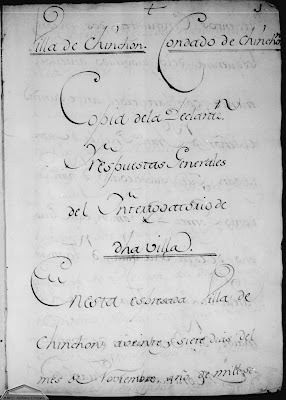 Villa de Chinchon. Condado de Chinchon
Copia de la Declaran.
Y Respuestas Generales
del Ynterrogatorio de
dha villa.
En
Nesta espresada Villa de
Chinchon, a veinte y siete dias del
mes de Noviembre, año de mill se